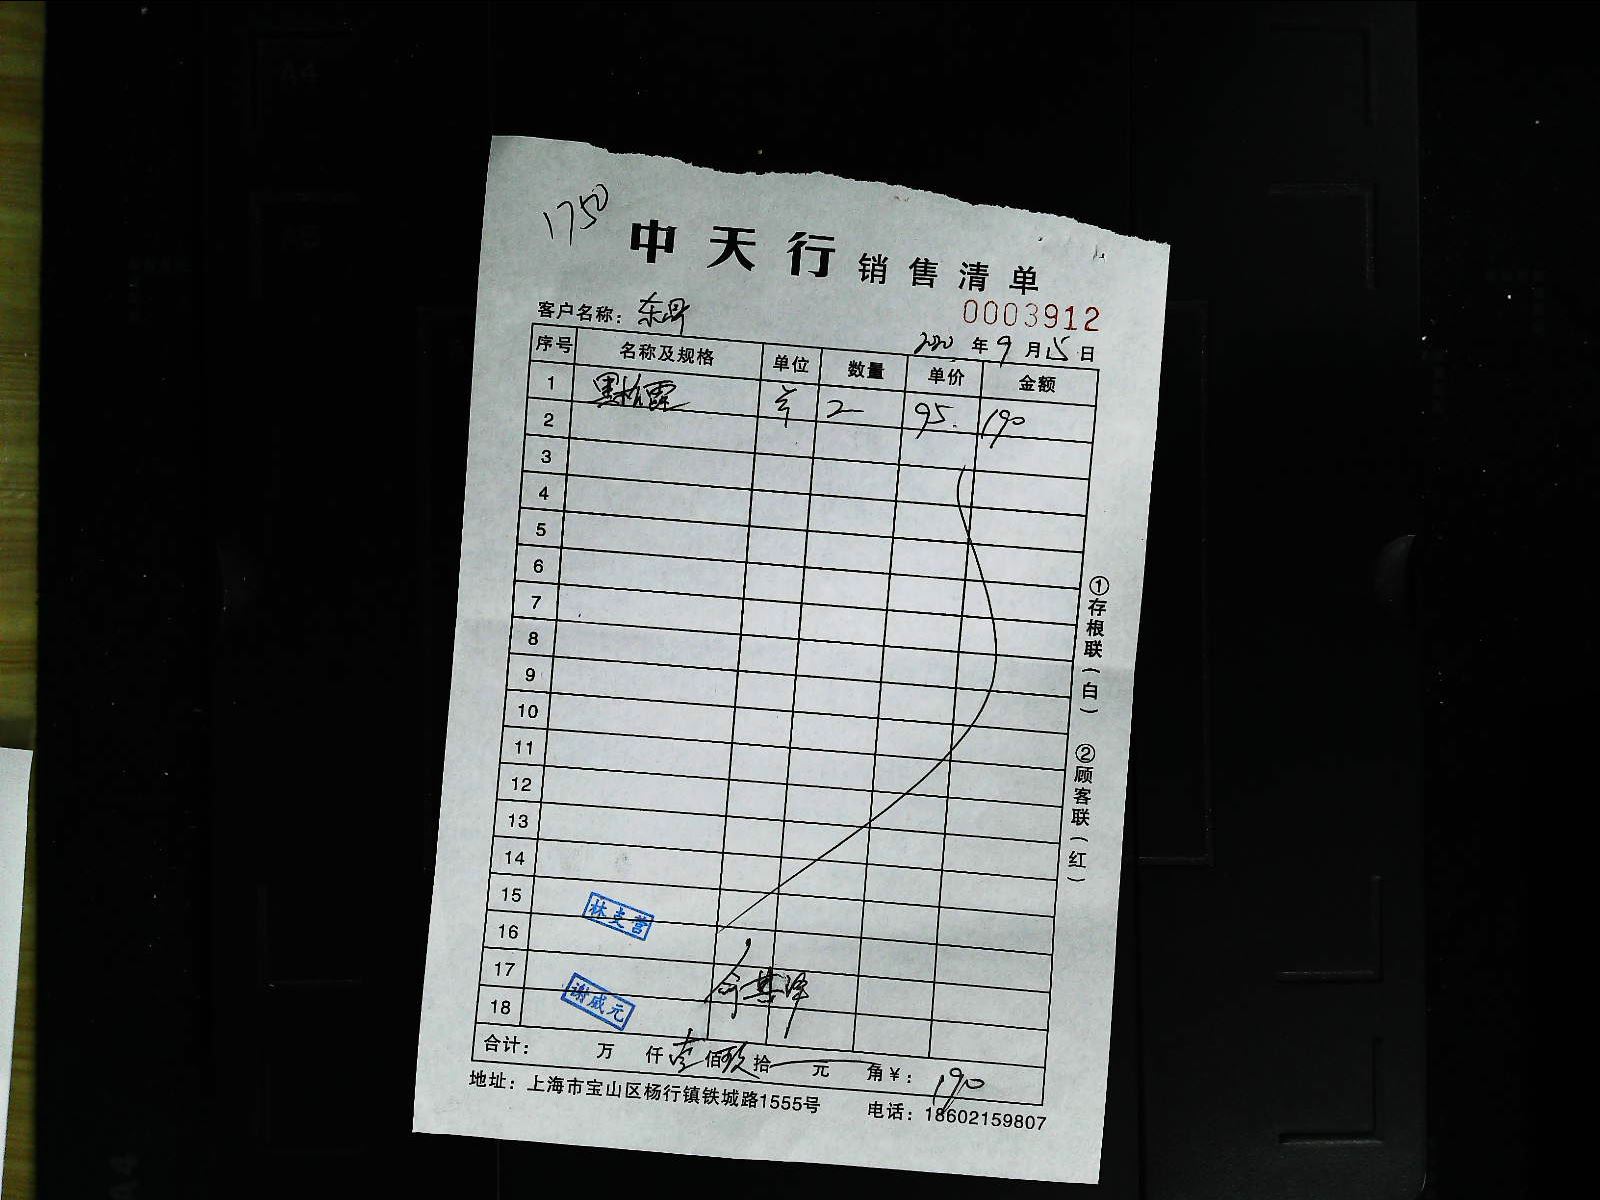 1750
中天行 销售清单
0003912
客户名称：东昇
2020年9月15日
序号 名称及规格 单位 数量 单价 金额
1 黑松露 2 95. 190
2
3
4
5
6
7
8
9
10
11
12
13
14
15 林支营
16
17
18 谢威元
合计： 万 仟壹佰玖拾 元 角￥：190
地址：上海市宝山区杨行镇铁城路1555号 电话：18602159807
①存根联（白） ②顾客联（红）